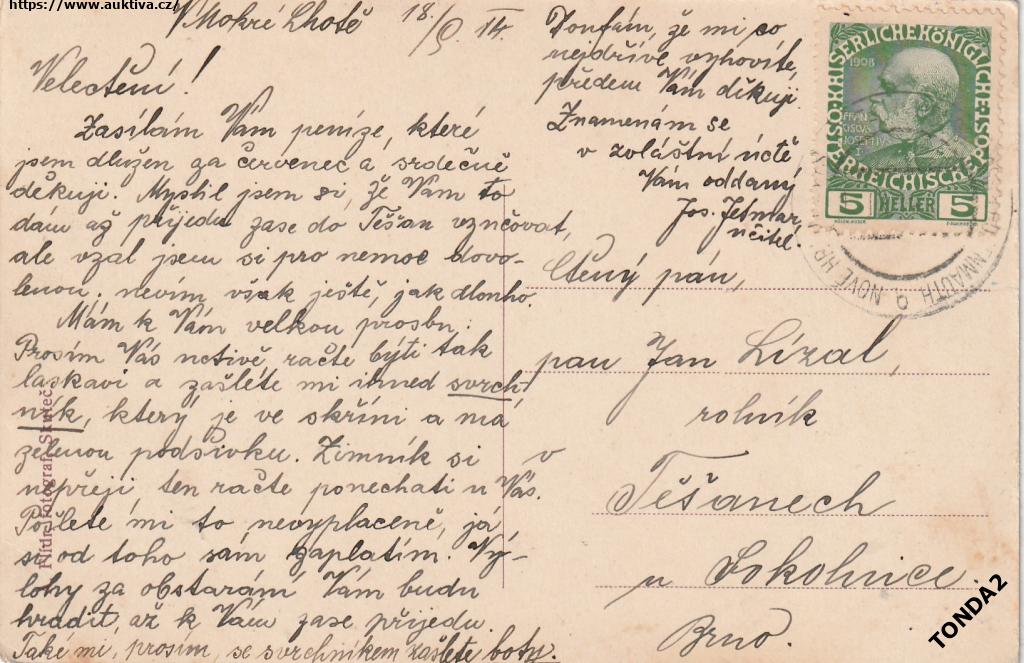 https://www.auktiva.cz/
V Mokré Lhotě 18./9. 14.
Velectění!
Zasílám Vám peníze, které
jsem dlužen za červenec a srdečně
děkuji. Myslil jsem si, že Vám to
dám až přijedu zase do Těšan vyučovat,
ale vzal jsem si pro nemoc dovo-
lenou. nevím však ještě, jak dlouho.
Mám k Vám velkou prosbu.
Prosím Vás uctivě, račte býti tak
laskavi a zašléte mi ihned svrch-
ník, který je ve skříni a má
zelenou podšívku. Zimník si
nepřeji, ten račte ponechati u Vás.
Pošlete mi to nevyplaceně, já
si od toho sám zaplatím. Vý-
lohy za obstarání Vám budu
hradit, až k Vám zase přijedu.
Také mi, prosím, se svrchníkem zašlete botu.
Doufám, že mi co
nejdříve vyhovíte,
předem Vám děkuji.
Znamenám se
v zvláštní úctě
Vám oddaný
Jos. Jetmar,
učitel.
Ctěný pán,
pan Jan Lízal,
rolník
v
Těšanech
u Sokolnice.
Brno.
KAISERLICHE KÖNIGLICHE ÖSTERREICHISCHE POST
1908
FRAN
CISCVS
IOSEPHVS
5 HELLER 5
NOVÉ HR
Fotograf, Skuteč
TONDA2